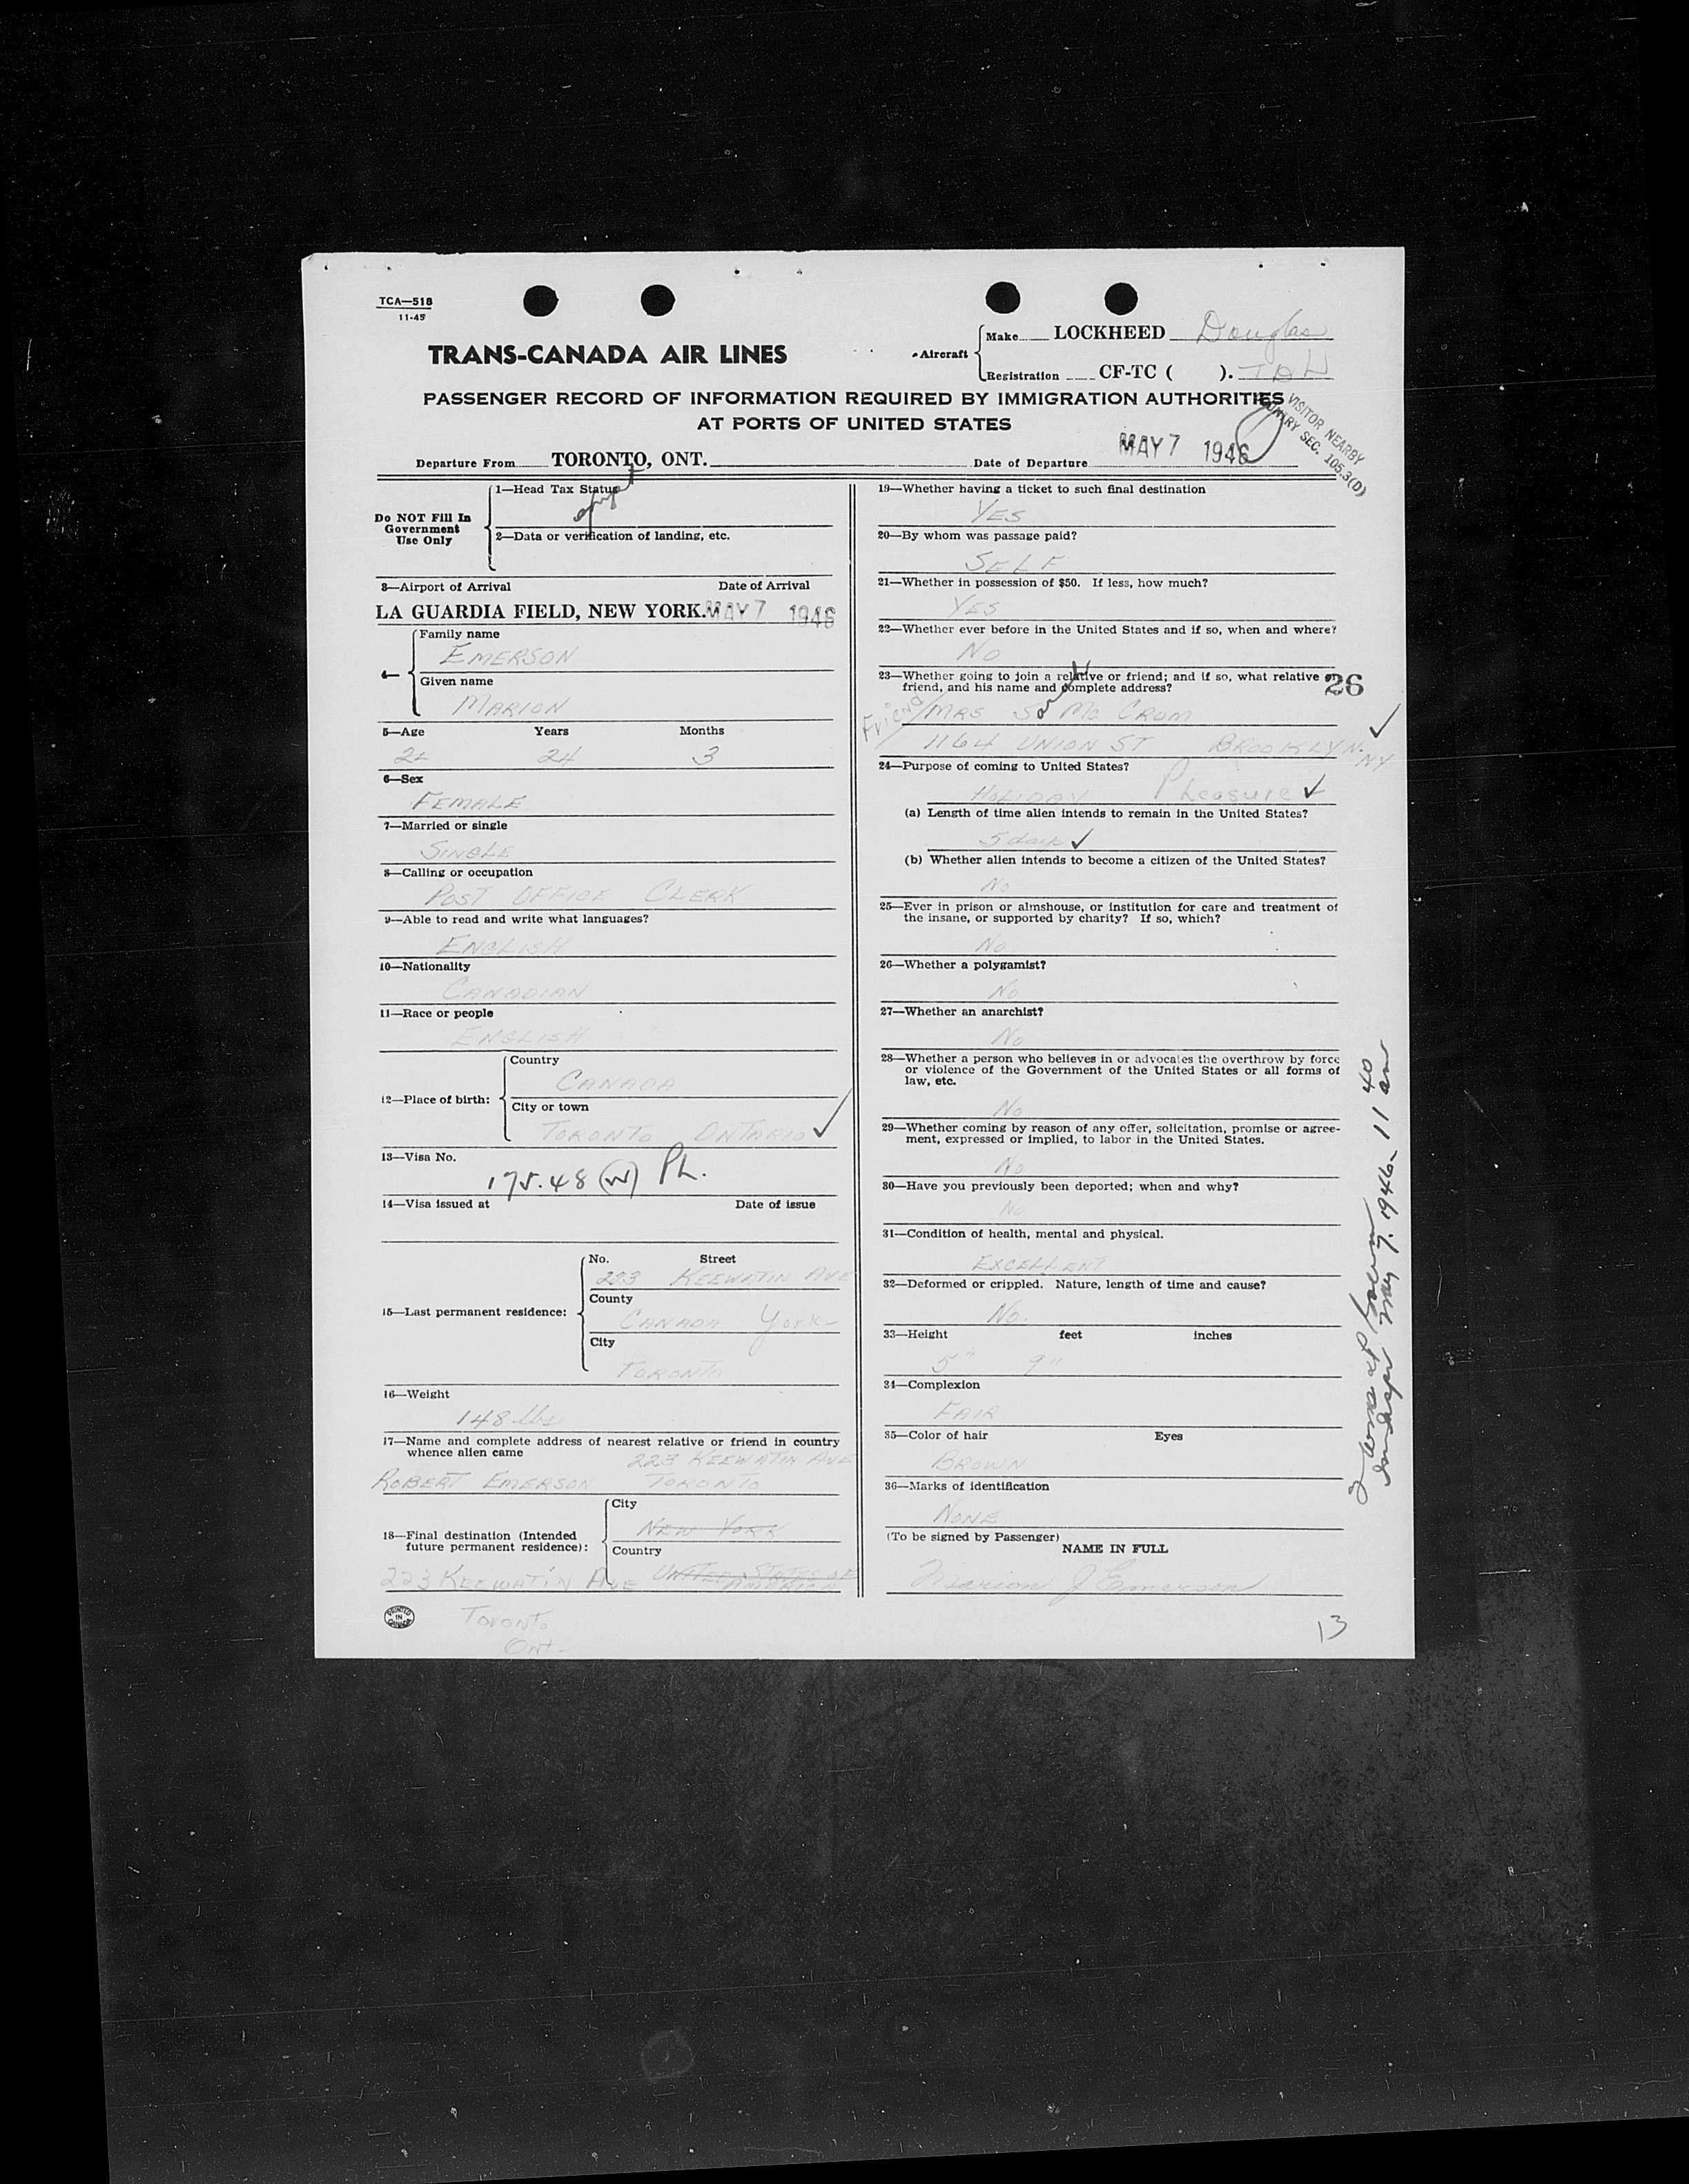 TCA—518
11-45
TRANS-CANADA AIR LINES
Aircraft
Make LOCKHEED Douglas
Registration CF-TC ( ).
PASSENGER RECORD OF INFORMATION REQUIRED BY IMMIGRATION AUTHORITIES
AT PORTS OF UNITED STATES
VISITOR NEARBY
SEC. 105.3(D)
Departure From TORONTO, ONT.
Date of Departure MAY 7 1946
Do NOT Fill In
Government
Use Only
1—Head Tax Status
2—Data or verification of landing, etc.
3—Airport of Arrival Date of Arrival
LA GUARDIA FIELD, NEW YORK. MAY 7 1946
4—
Family name
EMERSON
Given name
MARION
5—Age Years Months
24 3
6—Sex
FEMALE
7—Married or single
SINGLE
8—Calling or occupation
POST OFFICE CLERK
9—Able to read and write what languages?
ENGLISH
10—Nationality
CANADIAN
11—Race or people
ENGLISH
12—Place of birth:
Country
CANADA
City or town
TORONTO ONTARIO ✓
13—Visa No.
175.48 (W) PL.
14—Visa issued at Date of issue
15—Last permanent residence:
No. Street
223 KEEWATIN AVE
County
CANADA York-
City
TORONTO
16—Weight
148 lbs
17—Name and complete address of nearest relative or friend in country
whence alien came
223 KEEWATIN AVE
ROBERT EMERSON TORONTO
18—Final destination (Intended
future permanent residence):
City
NEW YORK
Country
UNITED STATES OF
AMERICA
223 KEEWATIN AVE
TORONTO
Ont-
PRINTED
IN
CANADA
19—Whether having a ticket to such final destination
YES
20—By whom was passage paid?
SELF
21—Whether in possession of $50. If less, how much?
YES
22—Whether ever before in the United States and if so, when and where?
NO
23—Whether going to join a relative or friend; and if so, what relative or
friend, and his name and complete address?
26
Friend
MRS Mc CROM
1164 UNION ST BROOKLYN. NY ✓
24—Purpose of coming to United States?
HOLIDAY Pleasure ✓
(a) Length of time alien intends to remain in the United States?
5 days ✓
(b) Whether alien intends to become a citizen of the United States?
No
25—Ever in prison or almshouse, or institution for care and treatment of
the insane, or supported by charity? If so, which?
No
26—Whether a polygamist?
No
27—Whether an anarchist?
No
28—Whether a person who believes in or advocates the overthrow by force
or violence of the Government of the United States or all forms of
law, etc.
No
29—Whether coming by reason of any offer, solicitation, promise or agree-
ment, expressed or implied, to labor in the United States.
No
30—Have you previously been deported; when and why?
No
31—Condition of health, mental and physical.
EXCELLENT
32—Deformed or crippled. Nature, length of time and cause?
No.
33—Height feet inches
5" 9"
34—Complexion
FAIR
35—Color of hair Eyes
BROWN
36—Marks of identification
NONE
(To be signed by Passenger)
NAME IN FULL
Marion J Emerson
13
May 7. 1946- 11 40 am